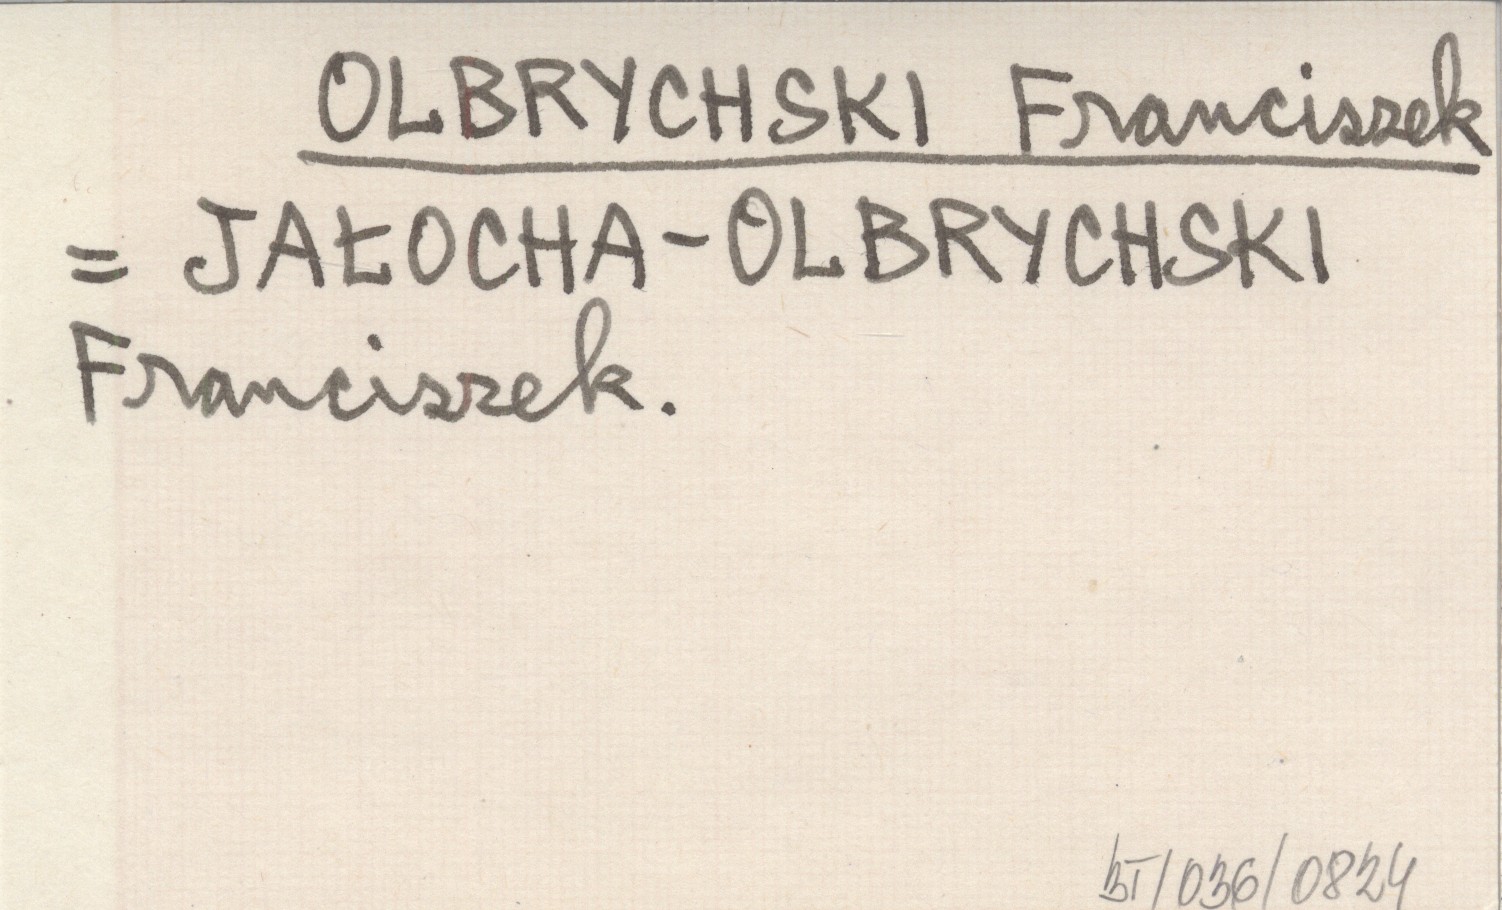 OLBRYCHSKI Franciszek
= JAŁOCHA-OLBRYCHSKI
Franciszek.
BT/036/0824